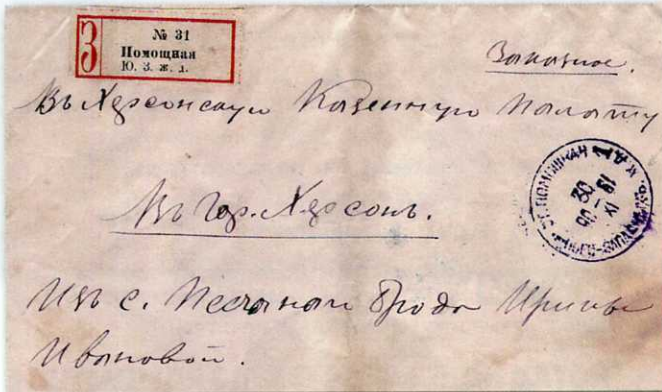 З
№ 31
Помощная
Ю. З. ж. д.
Заказное.
Въ Херсонскую Казенную Палату
Въ гор. Херсонъ.
Изъ с. Песчанаго Брода Ирины
Ивановой.
ПОМОЩНАЯ
30
XI